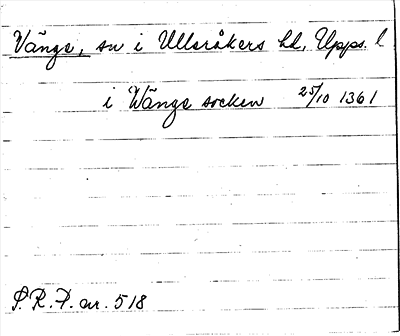 Vänge, sn i Ulleråkers hd, Upps. l
i Wängs socken 25/10 1361
S.R.P. nr. 518